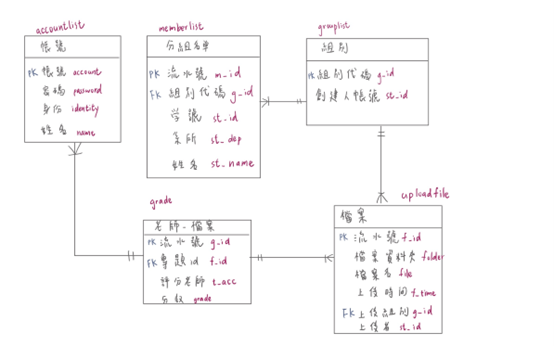 accountlist
帳號
PK 帳號 account
密碼 password
身份 identity
姓名 name
memberlist
分組名單
PK 流水號 m_id
FK 組別代碼 g_id
學號 st_id
系所 st_dep
姓名 st_name
grouplist
組別
PK 組別代碼 g_id
創建人帳號 st_id
grade
老師-檔案
PK 流水號 g_id
FK 專題id f_id
評分老師 t_acc
分數 grade
uploadfile
檔案
PK 流水號 f_id
檔案資料夾 folder
檔案名 file
上傳時間 f_time
FK 上傳組別 g_id
上傳者 st_id